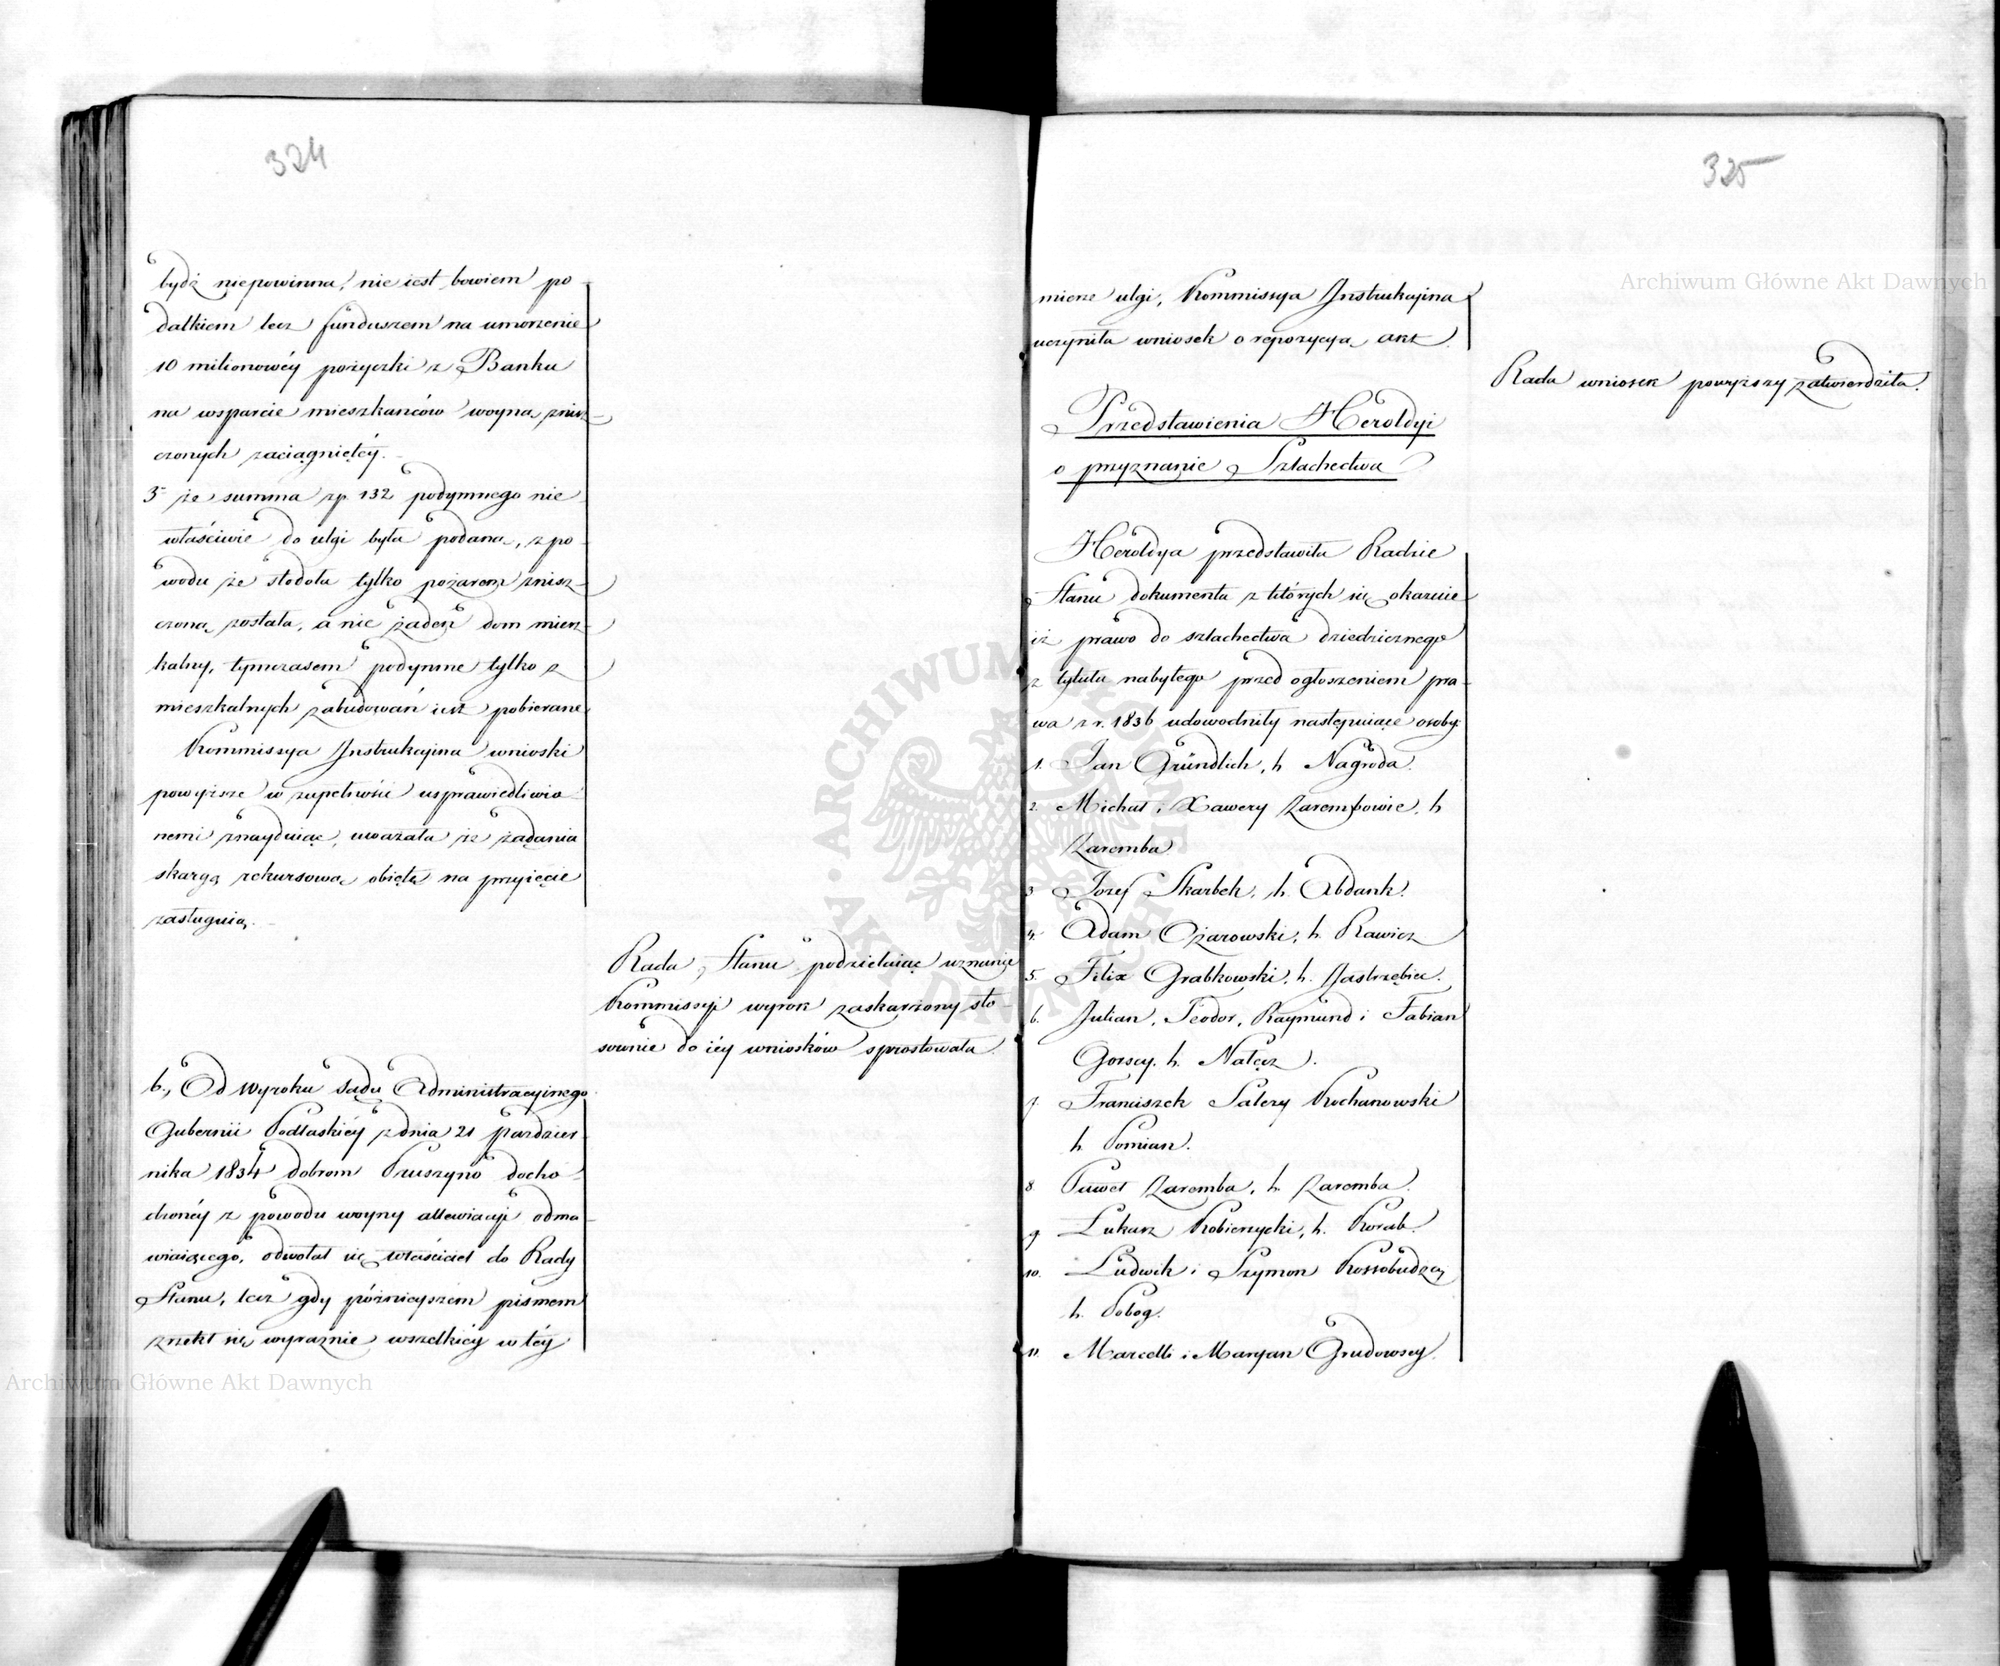 324
bydź niepowinna, nie iest bowiem po
datkiem lecz funduszem na umorzenie
10 milionowéy pożyczki z Banku
na wsparcie mieszkańców woyną znisz
czonych zaciągniętéy.
3° że summa zp. 132 podymnego nie
właściwie do ulgi była podana, z po
wodu że stodoła tylko pożarem znisz
czoną została, a nie żaden dom miesz
kalny, tymczasem podymne tylko z
mieszkalnych zabudowań iest pobierane
Kommissya Instrukcyina wnioski
powyższe w zupełności usprawiedliwio
nemi znayduiąc, uważała że żądania
skargą rekursową obięte na przyięcie
zasługuią.
Rada Stanu podzielaiąc uznanie
Kommissyi wyrok zaskarżony sto
sownie do iéy wniosków sprostowała.
6., Od Wyroku Sądu Administracyinego
Gubernii Podlaskiéy z dnia 21 paździer
nika 1834 dobrom Pruszyno docho
dzonéy z powodu woyny allewiacyi odma
wiaiącego, odwołał się właściciel do Rady
Stanu, lecz gdy późnieyszem pismem
zrzekł się wyraźnie wszelkiéy w téy
325
mierze ulgi, Kommissya Instrukcyina
uczyniła wniosek o repozycyą akt.
Rada wniosek powyższy zatwierdziła.
Przedstawienia Heroldyi
o przyznanie Szlachectwa
Heroldya przedstawiła Radzie
Stanu dokumenta z których się okazuie
iż prawo do szlachectwa dziedzicznego
z tytułu nabytego przed ogłoszeniem pra
wa z r. 1836 udowodniły następuiące osoby:
1. Jan Gründlich, h. Nagroda.
2. Michał i Xawery Zarembowie, h
Zaremba.
3 Jozef Skarbek, h. Abdank.
4. Adam Ożarowski, h. Rawicz
5. Felix Grabkowski, h. Jastrzębiec.
6. Julian, Teodor, Raymund i Fabian
Gorscy, h. Nałęcz.
7. Franciszek Salezy Kochanowski
h Pomian.
8. Paweł Zaremba, h. Zaremba.
9 Łukasz Kobierzycki, h. Korab.
10. Ludwik i Szymon Kossobudzcy
h. Pobog.
11. Marcelli i Maryan Grudowscy.
Archiwum Główne Akt Dawnych
Archiwum Główne Akt Dawnych
ARCHIWUM GŁÓWNE AKT DAWNYCH